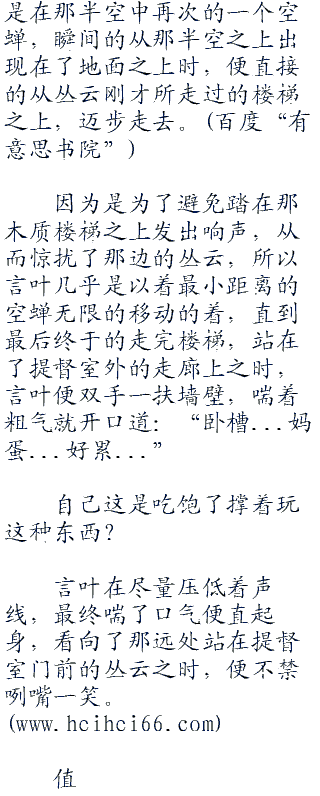 是在那半空中再次的一个空
蝉，瞬间的从那半空之上出
现在了地面之上时，便直接
的从丛云刚才所走过的楼梯
之上，迈步走去。(百度“有
意思书院”)
因为是为了避免踏在那
木质楼梯之上发出响声，从
而惊扰了那边的丛云，所以
言叶几乎是以着最小距离的
空蝉无限的移动的着，直到
最后终于的走完楼梯，站在
了提督室外的走廊上之时，
言叶便双手一扶墙壁，喘着
粗气就开口道：“卧槽...妈
蛋...好累...”
自己这是吃饱了撑着玩
这种东西？
言叶在尽量压低着声
线，最终喘了口气便直起
身，看向了那远处站在提督
室门前的丛云之时，便不禁
咧嘴一笑。
(www.hcihci66.com)
值